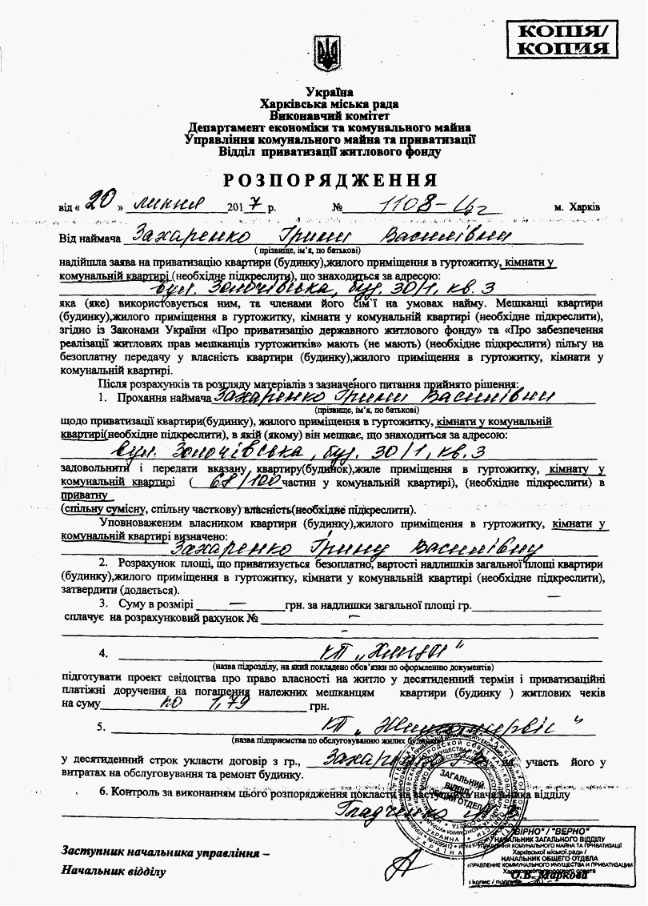 КОПІЯ/
КОПИЯ
Україна
Харківська міська рада
Виконавчий комітет
Департамент економіки та комунального майна
Управління комунального майна та приватизації
Відділ приватизації житлового фонду
РОЗПОРЯДЖЕННЯ
від « 20 » липня 2017 р. № 1108-Ц м. Харків
Від наймача Захаренко Ірини Василівни
( прізвище, ім'я, по батькові)
надійшла заява на приватизацію квартири (будинку),жилого приміщення в гуртожитку, кімнати у
комунальній квартирі (необхідне підкреслити), що знаходиться за адресою:
вул. Золочівська, буд. 30/1, кв. 3
яка (яке) використовується ним, та членами його сім'ї на умовах найму. Мешканці квартири
(будинку),жилого приміщення в гуртожитку, кімнати у комунальній квартирі (необхідне підкреслити),
згідно із Законами України «Про приватизацію державного житлового фонду» та «Про забезпечення
реалізації житлових прав мешканців гуртожитків» мають (не мають) (необхідне підкреслити) пільгу на
безоплатну передачу у власність квартири (будинку),жилого приміщення в гуртожитку, кімнати у
комунальній квартирі.
Після розрахунків та розгляду матеріалів з зазначеного питання прийнято рішення:
1. Прохання наймача Захаренко Ірини Василівни
(прізвище, ім'я, по батькові)
щодо приватизації квартири(будинку), жилого приміщення в гуртожитку, кімнати у комунальній
квартирі(необхідне підкреслити), в якій (якому) він мешкає, що знаходиться за адресою:
вул. Золочівська, буд. 30/1, кв. 3
задовольнити і передати вказану квартиру(будинок),жиле приміщення в гуртожитку, кімнату у
комунальній квартирі ( 68/100 частин у комунальній квартирі), (необхідне підкреслити) в
приватну
(спільну сумісну, спільну часткову) власність(необхідне підкреслити).
Уповноваженим власником квартири (будинку),жилого приміщення в гуртожитку, кімнати у
комунальній квартирі визначено:
Захаренко Ірину Василівну
2. Розрахунок площі, що приватизується безоплатно, вартості надлишків загальної площі квартири
(будинку),жилого приміщення в гуртожитку, кімнати у комунальній квартирі (необхідне підкреслити),
затвердити (додається).
3. Суму в розмірі — грн. за надлишки загальної площі гр.
сплачує на розрахунковий рахунок № —
4. КП "
(назва підрозділу, на який покладено обов'язки по оформленню документів)
підготувати проект свідоцтва про право власності на житло у десятиденний термін і приватизаційні
платіжні доручення на погашення належних мешканцям квартири (будинку ) житлових чеків
на суму по 1,79 грн.
5. КП "Жилкомсервіс"
(назва підприємства по обслуговуванню жилих
у десятиденний строк укласти договір з гр., участь його у
витратах на обслуговування та ремонт будинку.
6. Контроль за виконанням цього розпорядження покласти на заступника начальника відділу
ЗАГАЛЬНИЙ
ВІДДІЛ
УКРАЇНА
Заступник начальника управління –
Начальник відділу
"ВІРНО" / "ВЕРНО"
НАЧАЛЬНИК ЗАГАЛЬНОГО ВІДДІЛУ
УПРАВЛІННЯ КОМУНАЛЬНОГО МАЙНА ТА ПРИВАТИЗАЦІЇ
Харківської міської ради /
НАЧАЛЬНИК ОБЩЕГО ОТДЕЛА
УПРАВЛЕНИЕ КОММУНАЛЬНОГО ИМУЩЕСТВА И ПРИВАТИЗАЦИИ
Харьковского городского совета
О.В. Маркова